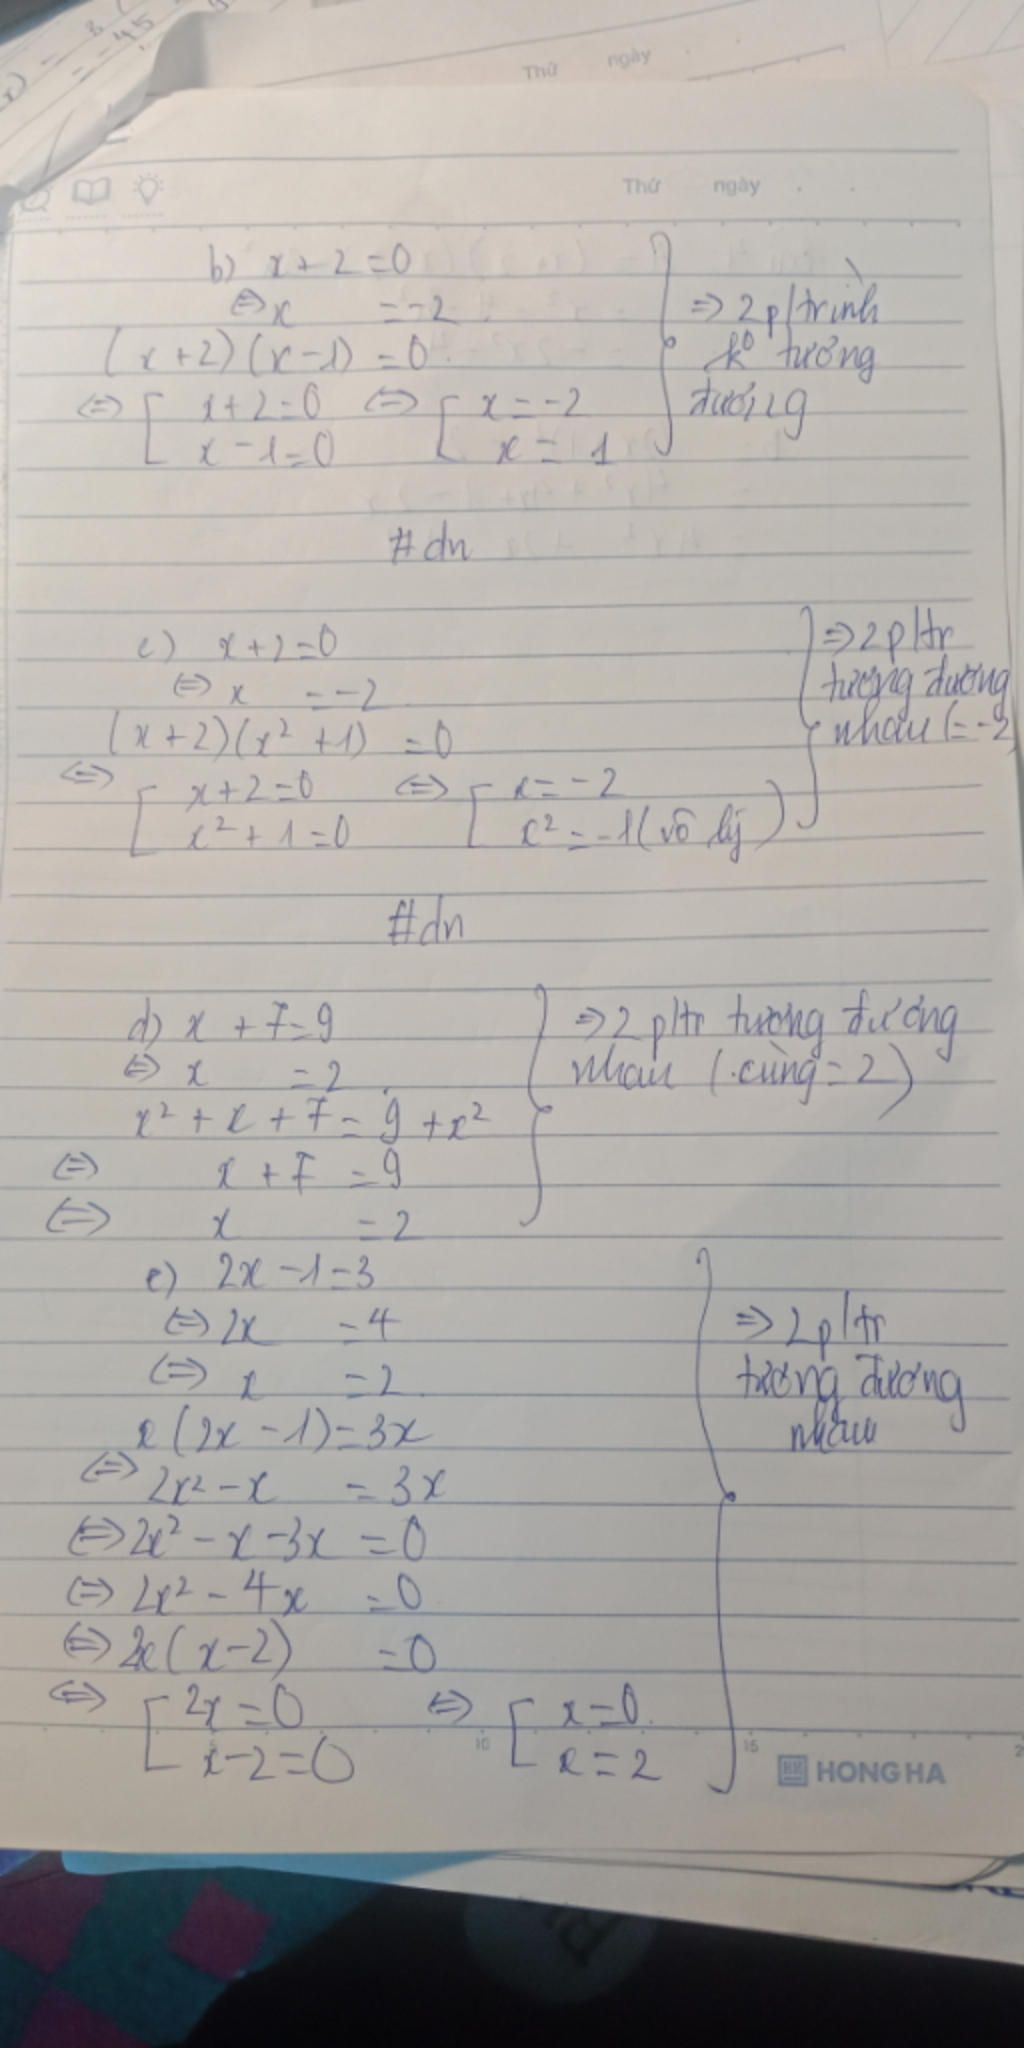 Thứ ngày
Thứ ngày
b) x + 2 = 0
⇔ x = -2
(x+2)(x-1) = 0
⇔ [ x+2=0 ⇔ [ x = -2
x-1=0 x = 1
⇒ 2 p/trình
k⁰ tương
đương
#dn
c) x+2=0
⇔ x = -2
(x+2)(x² +1) = 0
⇔ [ x+2=0 ⇔ [ x = -2
x²+1=0 x² = -1 (vô lý)
⇒ 2 p/tr
tương đương
nhau (= -2)
#dn
d) x + 7 = 9
⇔ x = 2
x² + x + 7 = 9 + x²
⇔ x + 7 = 9
⇔ x = 2
⇒ 2 p/tr tương đương
nhau (cùng = 2)
e) 2x - 1 = 3
⇔ 2x = 4
⇔ x = 2
x(2x - 1) = 3x
⇔ 2x² - x = 3x
⇔ 2x² - x - 3x = 0
⇔ 2x² - 4x = 0
⇔ 2x(x-2) = 0
⇔ [ 2x = 0 ⇔ [ x = 0
x-2 = 0 x = 2
⇒ 2 p/tr
tương đương
nhau
10 15
HONG HA